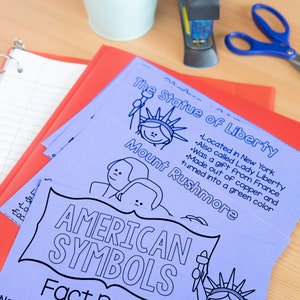 The Statue of Liberty
•Located in New York
•Also called Lady Liberty
•Was a gift from France
•Made out of copper and
turned into a green color
Mount Rushmore
AMERICAN
SYMBOLS
Fact